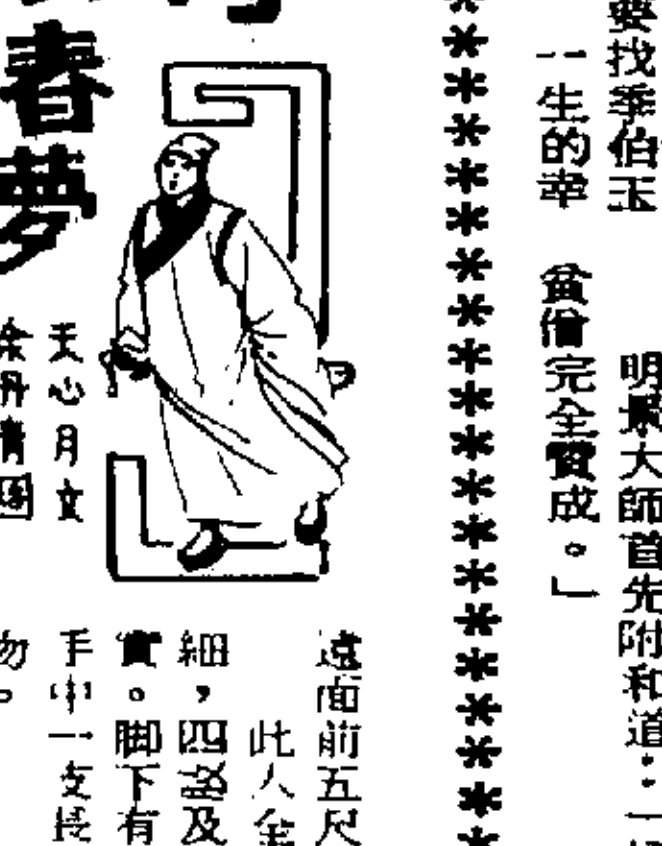 要找季伯玉
一生的幸
明景大師首先附和道：「
貧僧完全贊成。」
春夢
天心月文
余丹青圖
遠面前五尺
此人全
細，四肢及
實。脚下有
手中一支長
物。